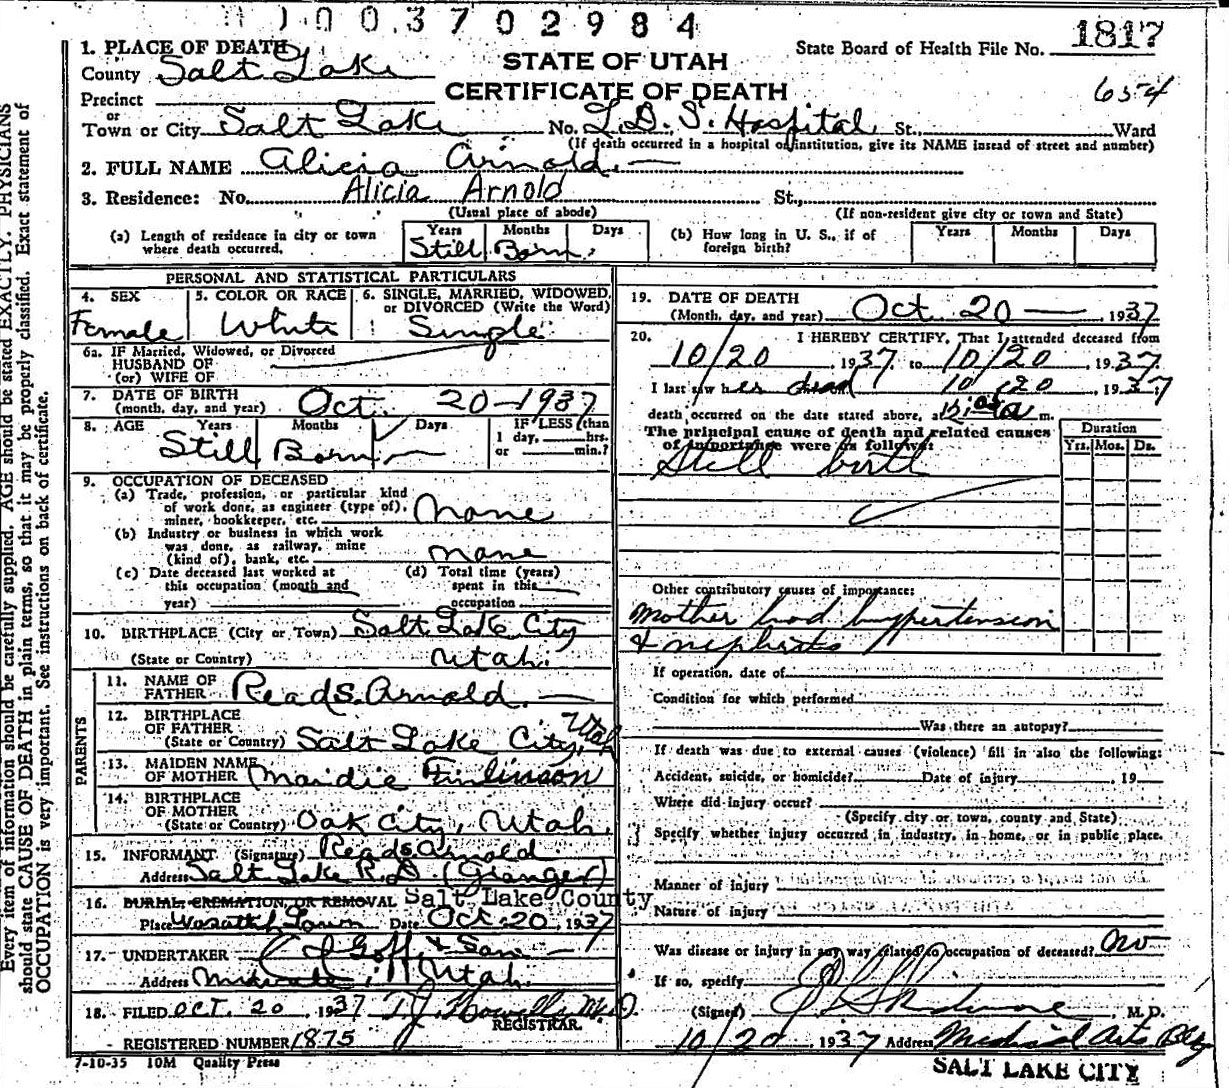 1003702984
1817
State Board of Health File No.
654
STATE OF UTAH
CERTIFICATE OF DEATH
1. PLACE OF DEATH
County Salt Lake
Precinct
or
Town or City Salt Lake No. L.D.S. Hospital St., Ward
(If death occurred in a hospital or institution, give its NAME insead of street and number)
2. FULL NAME Alicia Arnold
3. Residence: No. Alicia Arnold St.,
(Usual place of abode) (If non-resident give city or town and State)
(a) Length of residence in city or town where death occurred. Years Months Days
Still Born.
(b) How long in U. S., if of foreign birth? Years Months Days
PERSONAL AND STATISTICAL PARTICULARS
4. SEX
Female
5. COLOR OR RACE
White
6. SINGLE, MARRIED, WIDOWED, or DIVORCED (Write the Word)
Single
6a. IF Married, Widowed, or Divorced
HUSBAND OF
(or) WIFE OF
7. DATE OF BIRTH
(month, day, and year) Oct. 20-1937
8. AGE Years Months Days IF LESS than
1 day, hrs.
or min.?
Still Born
9. OCCUPATION OF DECEASED
(a) Trade, profession, or particular kind
of work done, as engineer (type of),
miner, bookkeeper, etc. None
(b) Industry or business in which work
was done, as railway, mine
(kind of), bank, etc. None
(c) Date deceased last worked at
this occupation (month and
year)
(d) Total time (years)
spent in this
occupation
10. BIRTHPLACE (City or Town) Salt Lake City
(State or Country) Utah.
PARENTS
11. NAME OF
FATHER Read S. Arnold.
12. BIRTHPLACE
OF FATHER
(State or Country) Salt Lake City, Utah
13. MAIDEN NAME
OF MOTHER Maidie Finlinson
14. BIRTHPLACE
OF MOTHER
(State or Country) Oak City, Utah.
15. INFORMANT (Signature) Read S Arnold
Address Salt Lake R.D. (Granger)
16. BURIAL, CREMATION, OR REMOVAL Salt Lake County
Place Wasatch Lawn Date Oct 20, 1937
17. UNDERTAKER Goff & Son
Address Midvale, Utah.
18. FILED OCT. 20, 1937 M.D.
REGISTRAR.
REGISTERED NUMBER 1875
7-10-35 10M Quality Press
19. DATE OF DEATH
(Month, day, and year) Oct. 20 1937
20. I HEREBY CERTIFY, That I attended deceased from
10/20, 1937 to 10/20, 1937
I last saw her dead 10/20, 1937
death occurred on the date stated above, at m.
The principal cause of death and related causes
of importance were as follows:
Duration
Yrs. Mos. Ds.
Still birth
Other contributory causes of importance:
Mother had hypertension
& nephritis
If operation, date of
Condition for which performed
Was there an autopsy?
If death was due to external causes (violence) fill in also the following:
Accident, suicide, or homicide? Date of injury , 19
Where did injury occur?
(Specify city or town, county and State)
Specify whether injury occurred in industry, in home, or in public place.
Manner of injury
Nature of injury
Was disease or injury in any way related to occupation of deceased? No
If so, specify
(Signed) , M. D.
10/20 1937 Address Medical Arts Bldg
SALT LAKE CITY
Every item of information should be carefully supplied. AGE should be stated EXACTLY. PHYSICIANS
should state CAUSE OF DEATH in plain terms, so that it may be properly classified. Exact statement of
OCCUPATION is very important. See instructions on back of certificate.